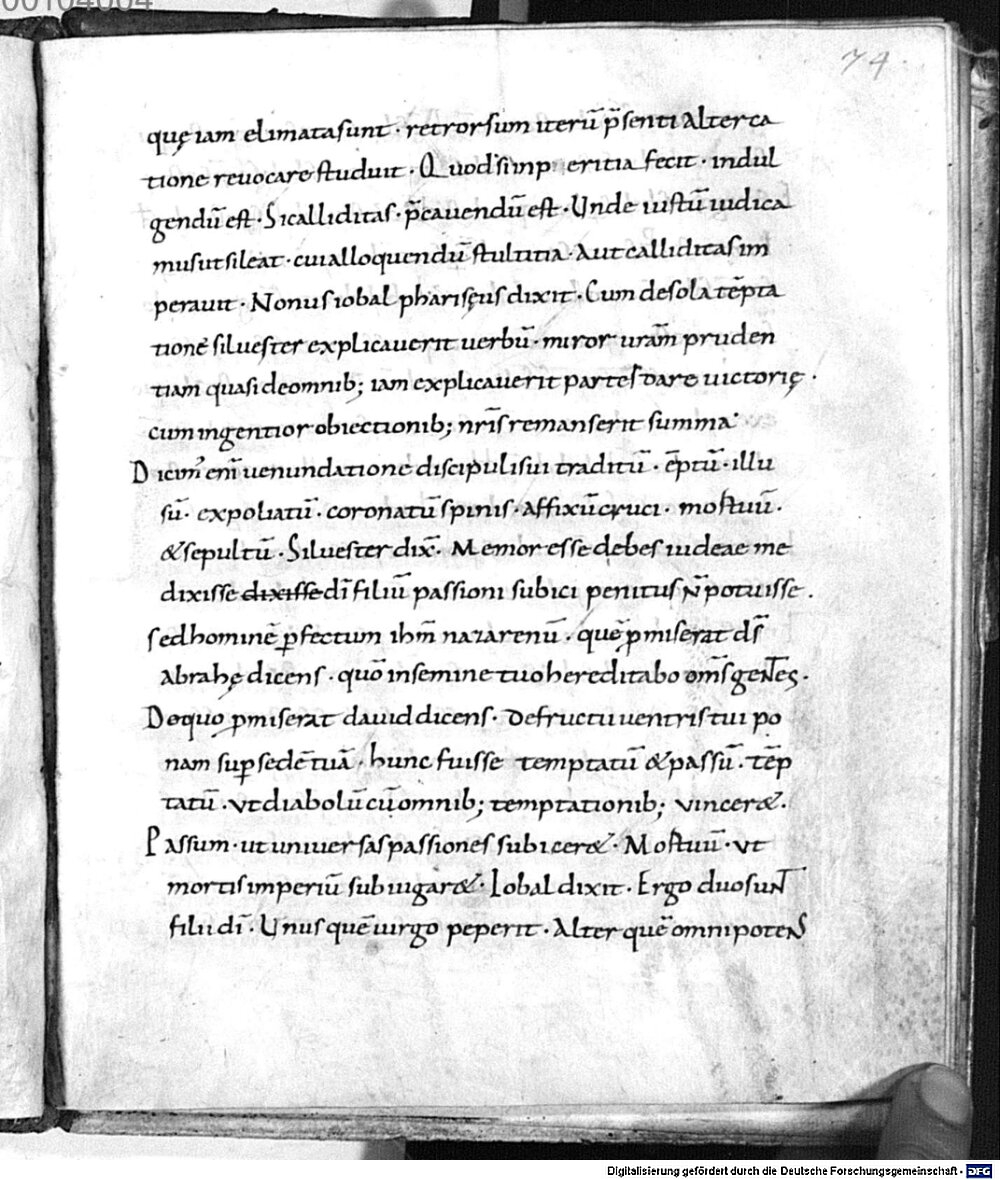 00104004
74.
quę iam elimata sunt · retrorsum iterū p̄senti alterca
tione reuocare studuit · Quod si inperitia fecit · indul
gendū est · Si calliditas · p̄cauendū est · Unde iustū iudica
mus ut sileat · cui alloquendū stultitia · Aut calliditas im
perauit · Nonus iobal phariseus dixit · Cum de sola tēpta
tione siluester explicauerit uerbū · miror urām pruden
tiam quasi de omnib; iam explicauerit partes dare uictorię ·
cum ingentior obiectionib; nr̄is remanserit summa ·
Dicim̄ enī uenundatione discipuli sui traditū · ēptū · illu
sū · expoliatū · coronatū spinis · affixū cruci · mortuū ·
& sepultū · Siluester dix̄ · Memor esse debes iudeae me
dixisse dixisse dī filiū passioni subici penitus n̄ potuisse .
sed hominē ꝑfectum ihm̄ nazarenū · quē ꝓmiserat ds̄
abrahę dicens · quō in semine tuo hereditabo om̄s gentes ·
De quo ꝓmiserat dauid dicens · De fructu uentris tui po
nam suꝑ sedē tuā · hunc fuisse temptatū & passū · tēp
tatū · ut diabolū cū omnib; temptationib; uincer& ·
Passum · ut uniuersas passiones subicer& · Mortuū · ut
mortis imperiū subiugar& · Iobal dixit · Ergo duo sunt
filii dī · Unus quē uirgo peperit · Alter quē omnipotens
Digitalisierung gefördert durch die Deutsche Forschungsgemeinschaft - DFG